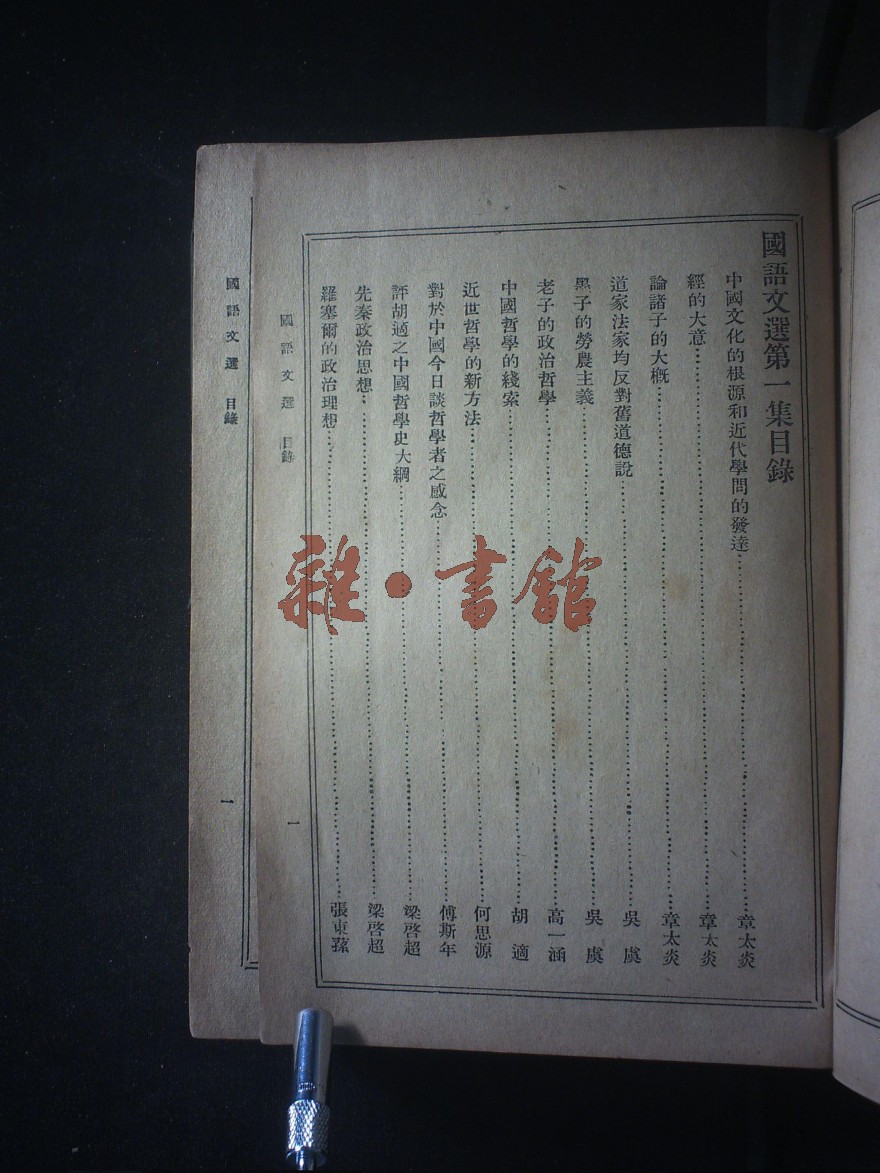 國語文選第一集目錄
中國文化的根源和近代學問的發達…………章太炎
經的大意…………章太炎
論諸子的大概…………章太炎
道家法家均反對舊道德說…………吳虞
墨子的勞農主義…………吳虞
老子的政治哲學…………高一涵
中國哲學的綫索…………胡適
近世哲學的新方法…………何思源
對於中國今日談哲學者之感念…………傅斯年
評胡適之中國哲學史大綱…………梁啓超
先秦政治思想…………梁啓超
羅塞爾的政治理想…………張東蓀
國語文選 目錄
一
國語文選 目錄
一
雜·書館